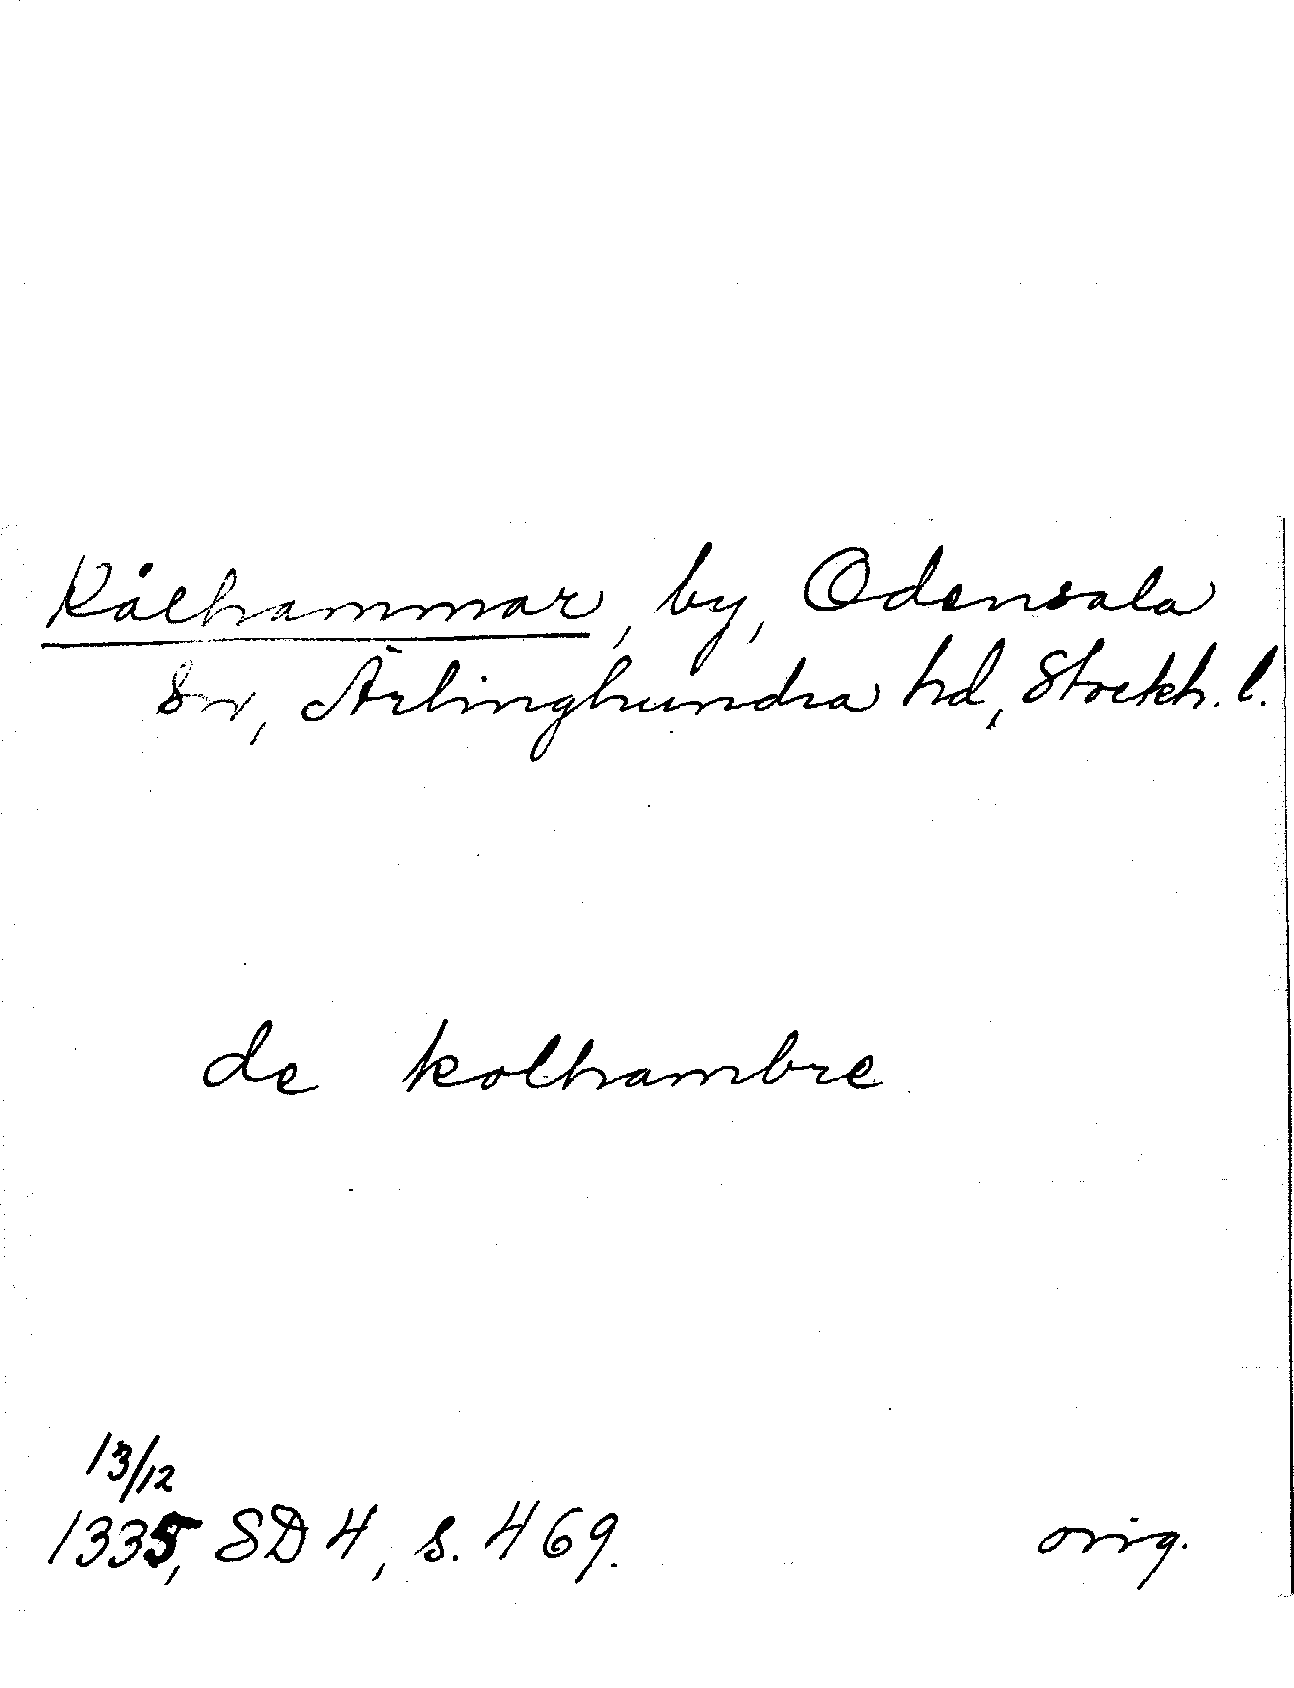 Kålhammar, by, Odensala
sn, Ärlinghundra hd, Stockh. l.
de kolhambre
13/12
1335, SD 4, s. 469.
orig.